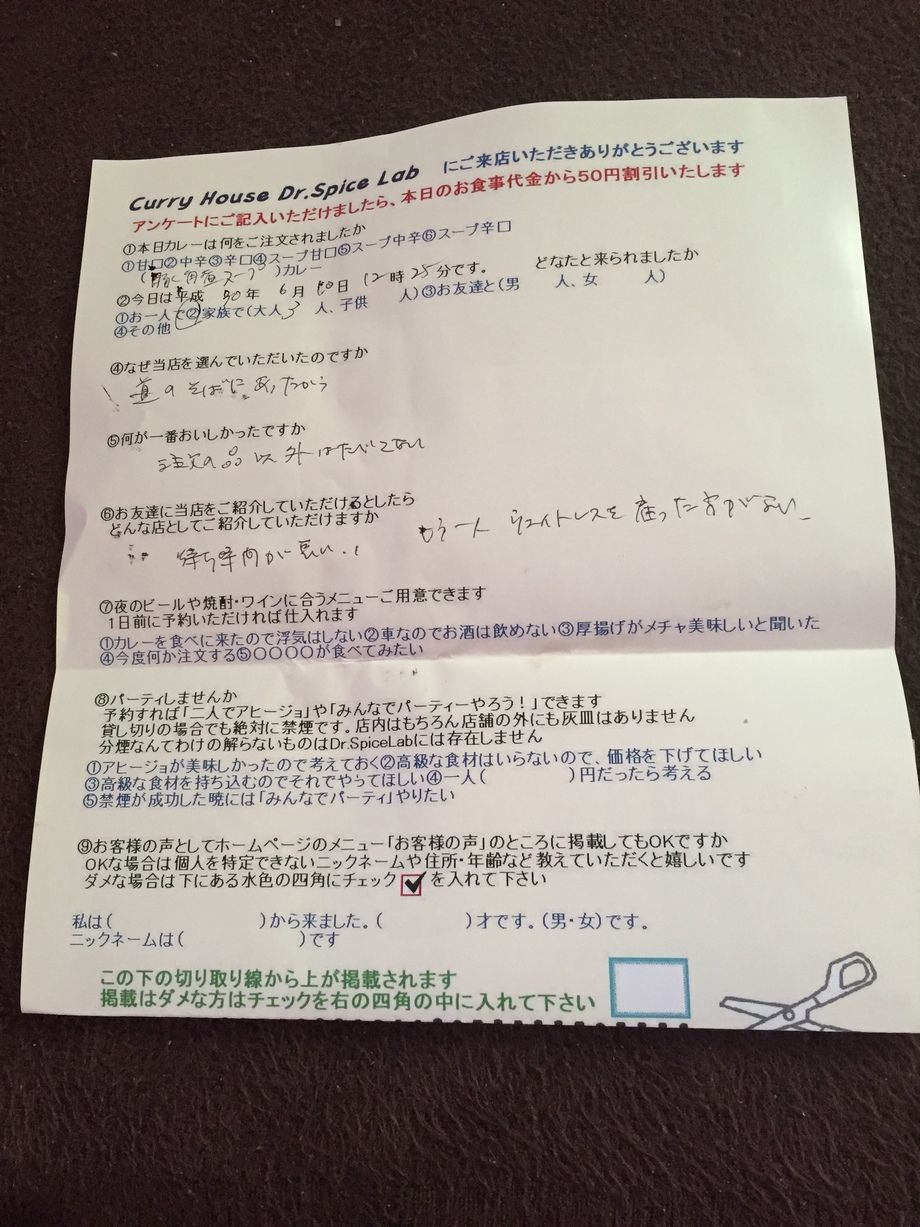 Curry House Dr.Spice Lab にご来店いただきありがとうございます
アンケートにご記入いただけましたら、本日のお食事代金から50円割引いたします
①本日カレーは何をご注文されましたか
①甘口②中辛③辛口④スープ甘口⑤スープ中辛⑥スープ辛口
(豚角煮スープ)カレー
②今日は平成 30年 6月 10日 12時 25分です。 どなたと来られましたか
①お一人で②家族で(大人 3 人、子供 人)③お友達と(男 人、女 人)
④その他
④なぜ当店を選んでいただいたのですか
道のそばにあったから
⑤何が一番おいしかったですか
注文の品以外はたべてない
⑥お友達に当店をご紹介していただけるとしたら
どんな店としてご紹介していただけますか
待ち時間が長い、 もう一人 ウエイトレスを 雇った方がよい
⑦夜のビールや焼酎・ワインに合うメニューご用意できます
1日前に予約いただければ仕入れます
①カレーを食べに来たので浮気はしない②車なのでお酒は飲めない③厚揚げがメチャ美味しいと聞いた
④今度何か注文する⑤〇〇〇〇が食べてみたい
⑧パーティしませんか
予約すれば「二人でアヒージョ」や「みんなでパーティーやろう！」できます
貸し切りの場合でも絶対に禁煙です。店内はもちろん店舗の外にも灰皿はありません
分煙なんてわけの解らないものはDr.SpiceLabには存在しません
①アヒージョが美味しかったので考えておく②高級な食材はいらないので、価格を下げてほしい
③高級な食材を持ち込むのでそれでやってほしい④一人( )円だったら考える
⑤禁煙が成功した暁には「みんなでパーティ」やりたい
⑨お客様の声としてホームページのメニュー「お客様の声」のところに掲載してもOKですか
OKな場合は個人を特定できないニックネームや住所・年齢など教えていただくと嬉しいです
ダメな場合は下にある水色の四角にチェック☑を入れて下さい
私は( )から来ました。( )才です。(男・女)です。
ニックネームは( )です
この下の切り取り線から上が掲載されます
掲載はダメな方はチェックを右の四角の中に入れて下さい